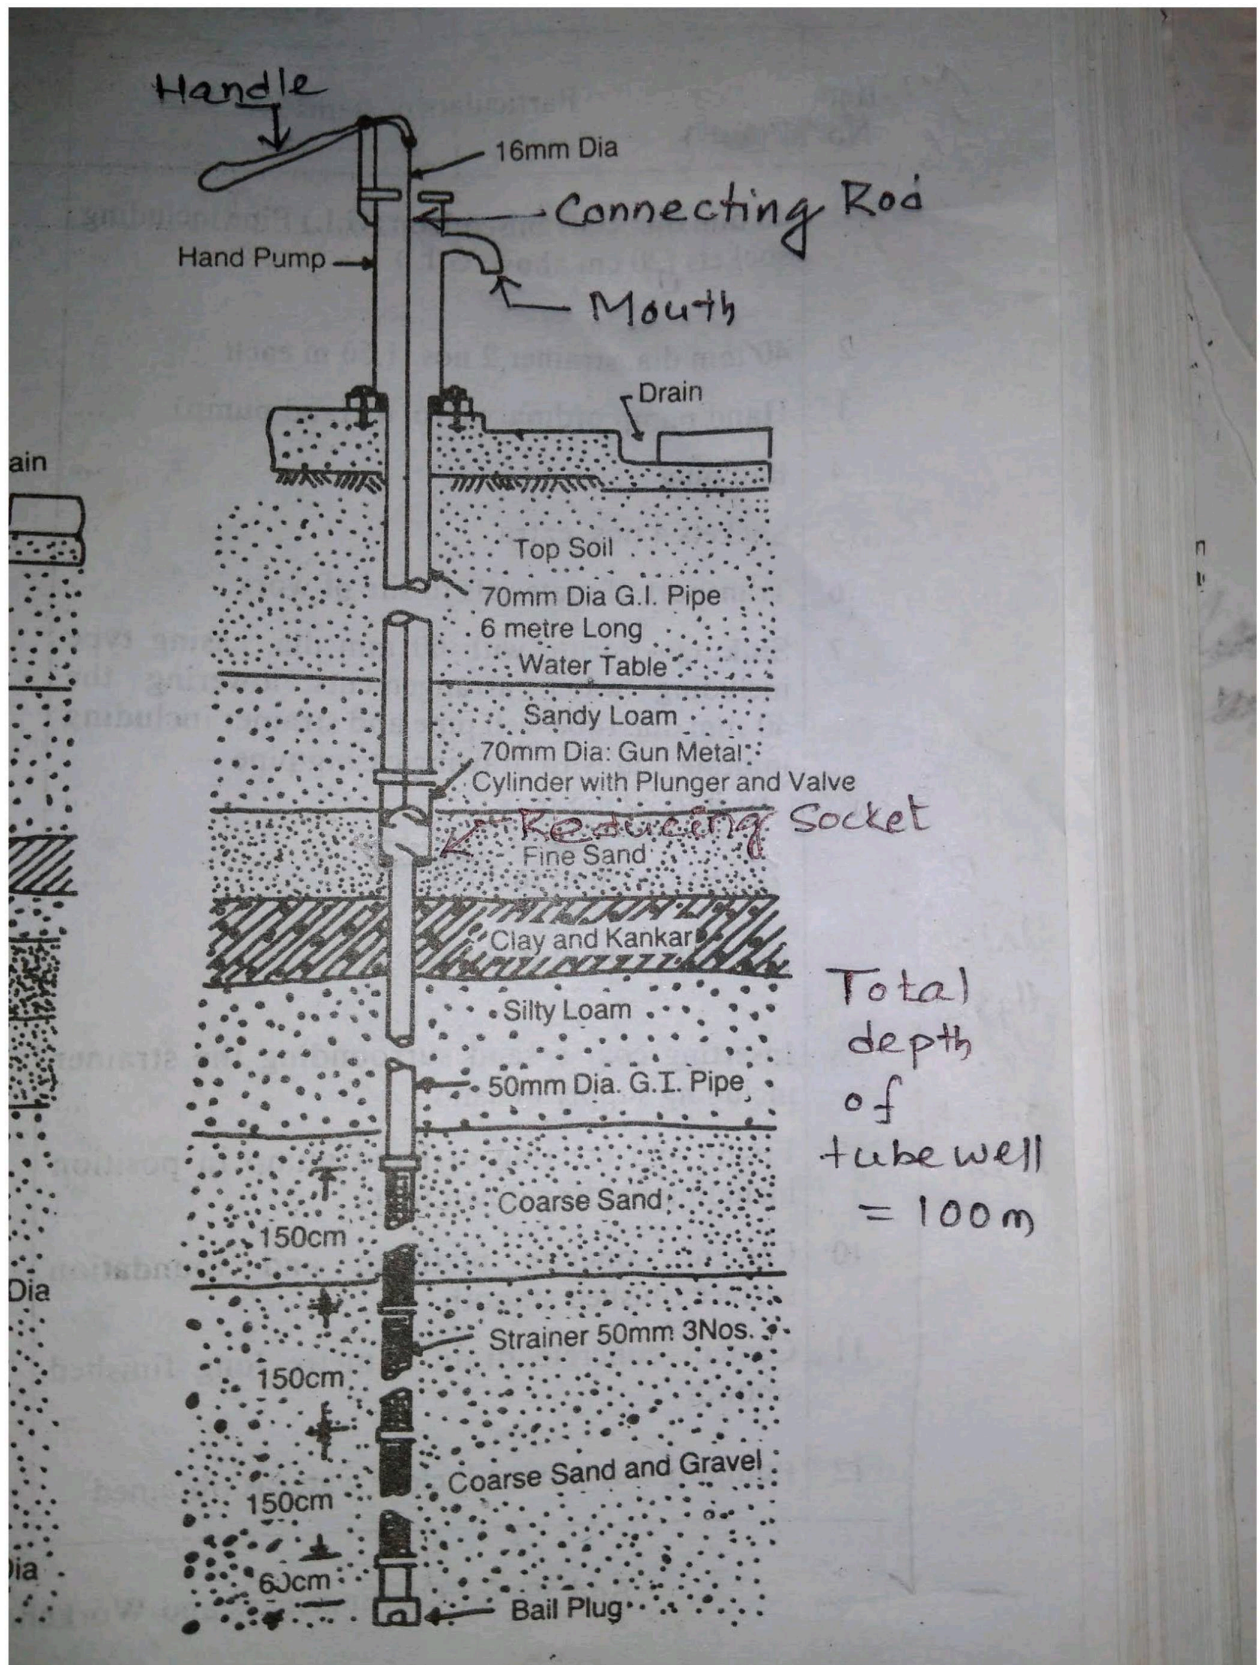 Handle
16mm Dia
Connecting Rod
Hand Pump
Mouth
Drain
ain
Top Soil
70mm Dia G.I. Pipe
6 metre Long
Water Table
Sandy Loam
70mm Dia: Gun Metal
Cylinder with Plunger and Valve
Reducing Socket
Fine Sand
Clay and Kankar
Total
depth
of
tube well
= 100m
Silty Loam
50mm Dia. G.I. Pipe
Coarse Sand
150cm
Dia
Strainer 50mm 3Nos.
150cm
Coarse Sand and Gravel
150cm
60cm
Bail Plug